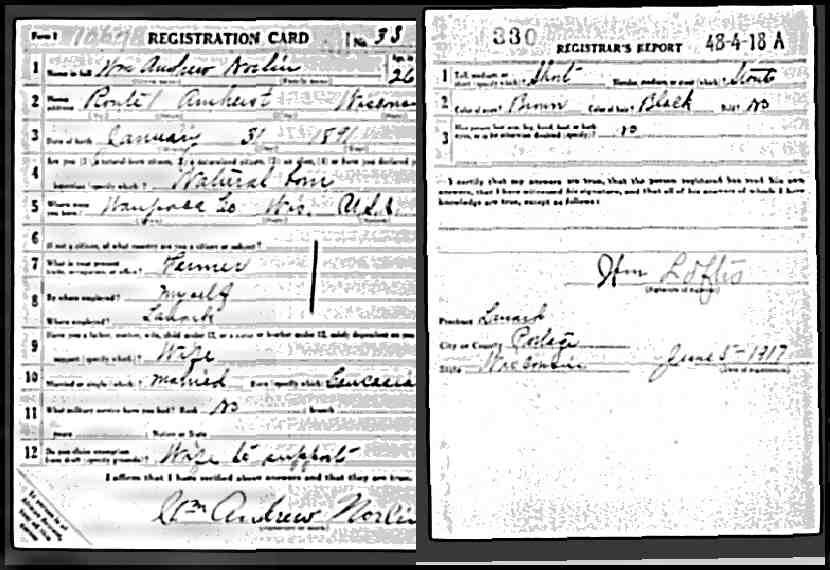 Form 1 REGISTRATION CARD No. 33
1 Name in full Wm Andrew Norlin Age, in yrs 26
2 Home address Route 1 Amherst Wisconsin
3 Date of birth January 31 1891
4 Are you (1) a natural born citizen, (2) a naturalized citizen, (3) an alien, (4) or have you declared your
intention (specify which)? Natural born
5 Where were you born? Waupaca Co Wis. U.S.A.
6 If not a citizen, of what country are you a citizen or subject?
7 What is your present trade, occupation, or office? Farmer
8 By whom employed? Myself
Where employed? Lanark
9 Have you a father, mother, wife, child under 12, or a sister or brother under 12, solely dependent on you
support (specify which)? Wife
10 Married or single (which)? Married Race (specify which)? Caucasia
11 What military service have you had? Rank No Branch
years Nation or State
12 Do you claim exemption from draft (specify grounds)? Wife to support
I affirm that I have verified above answers and that they are true.
Wm Andrew Norlin
(Signature or mark)
330 REGISTRAR'S REPORT 48-4-18 A
1 Tall, medium, or short (specify which)? Short Slender, medium, or stout (which)? Stout
2 Color of eyes? Brown Color of hair? Black Bald? No
3 Has person lost arm, leg, hand, foot, or both eyes, or is he otherwise disabled (specify)? no
I certify that my answers are true, that the person registered has read his own
answers, that I have witnessed his signature, and that all of his answers of which I have
knowledge are true, except as follows:
Wm Loftis
(Signature of registrar)
Precinct Lanark
City or County Portage
State Wisconsin June 5-1917
(Date of registration)